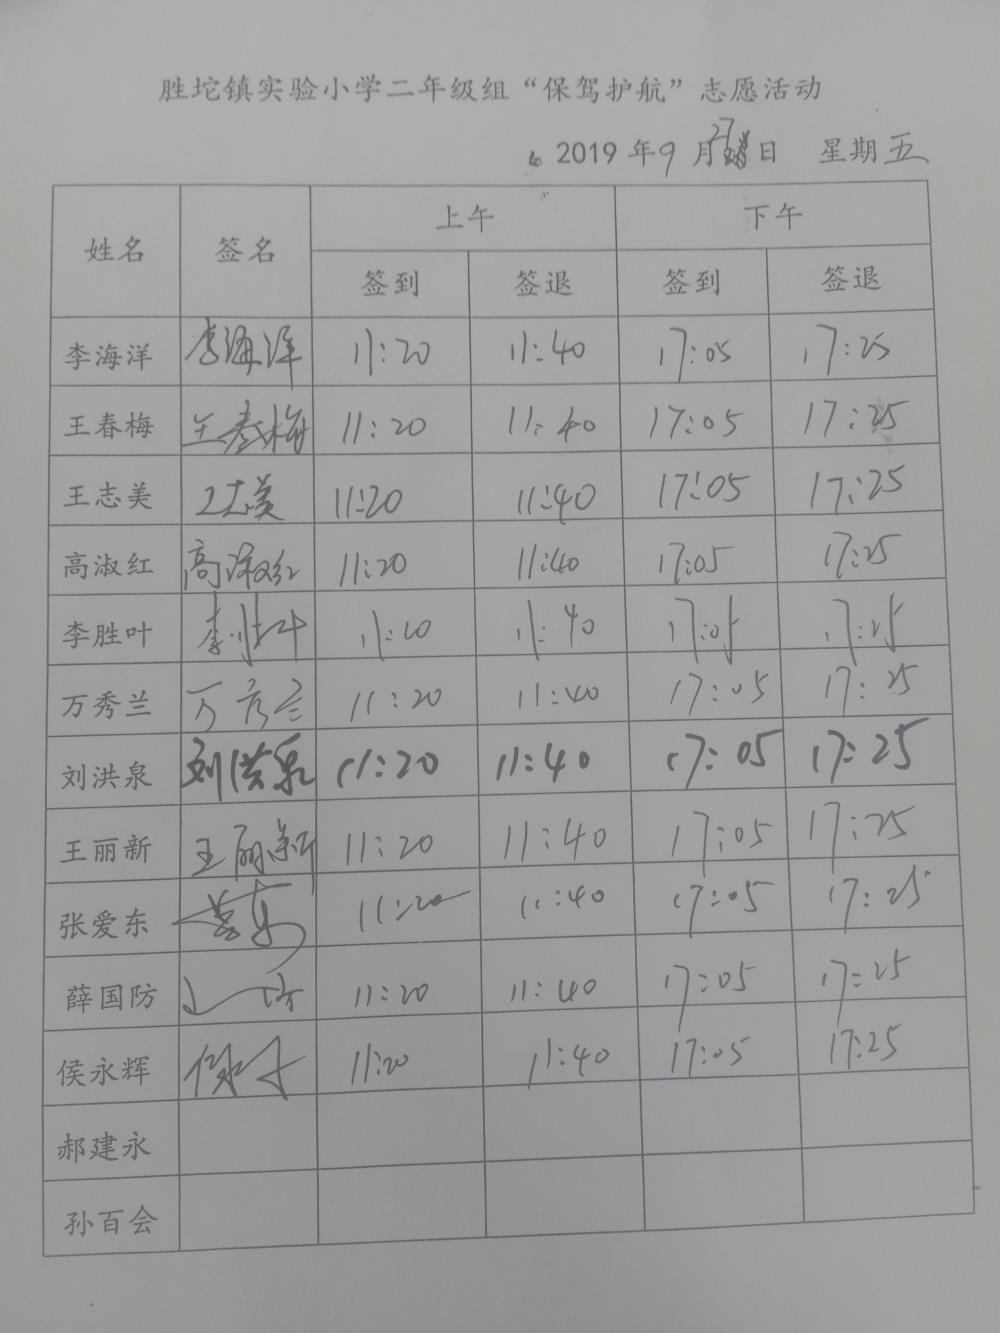 胜坨镇实验小学二年级组“保驾护航”志愿活动
2019年9月27日 星期五
姓名 签名 上午 下午
签到 签退 签到 签退
李海洋 李海洋 11:20 11:40 17:05 17:25
王春梅 王春梅 11:20 11:40 17:05 17:25
王志美 王志美 11:20 11:40 17:05 17:25
高淑红 高淑红 11:20 11:40 17:05 17:25
李胜叶 李胜叶 11:20 11:40 17:05 17:25
万秀兰 万秀兰 11:20 11:40 17:05 17:25
刘洪泉 刘洪泉 11:20 11:40 17:05 17:25
王丽新 王丽新 11:20 11:40 17:05 17:25
张爱东 11:20 11:40 17:05 17:25
薛国防 11:20 11:40 17:05 17:25
侯永辉 11:20 11:40 17:05 17:25
郝建永
孙百会